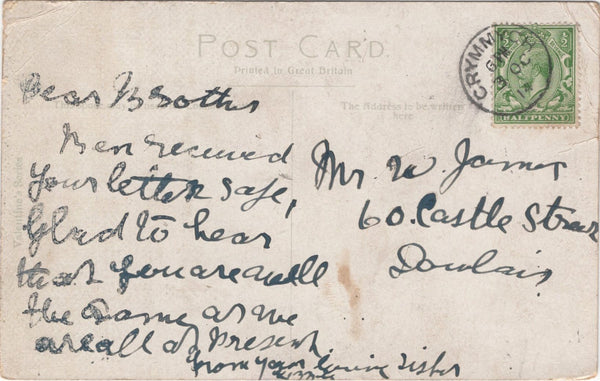 POST CARD.
Printed in Great Britain
The Address to be written
here
CRYMMYCH
OC
14
HALFPENNY
Dear Brother
Ben received
your letter safe,
Glad to hear
that you are well
the same as we
are all at Present
from your loving sister
Mr W. James
60. Castle Street
Dowlais